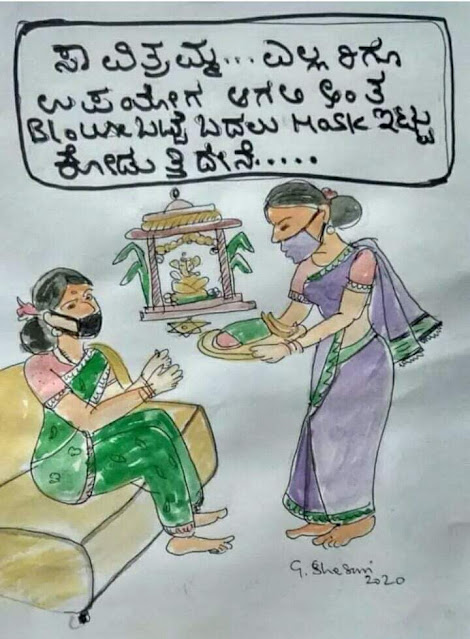 ಸಾವಿತ್ರಮ್ಮ... ಎಲ್ಲರಿಗೂ
ಉಪಯೋಗ ಆಗಲಿ ಅಂತ
Blouse ಬಟ್ಟೆ ಬದಲು Mask ಇಟ್ಟು
ಕೊಡುತ್ತಿದೇನೆ.....
G. Shesari
2020